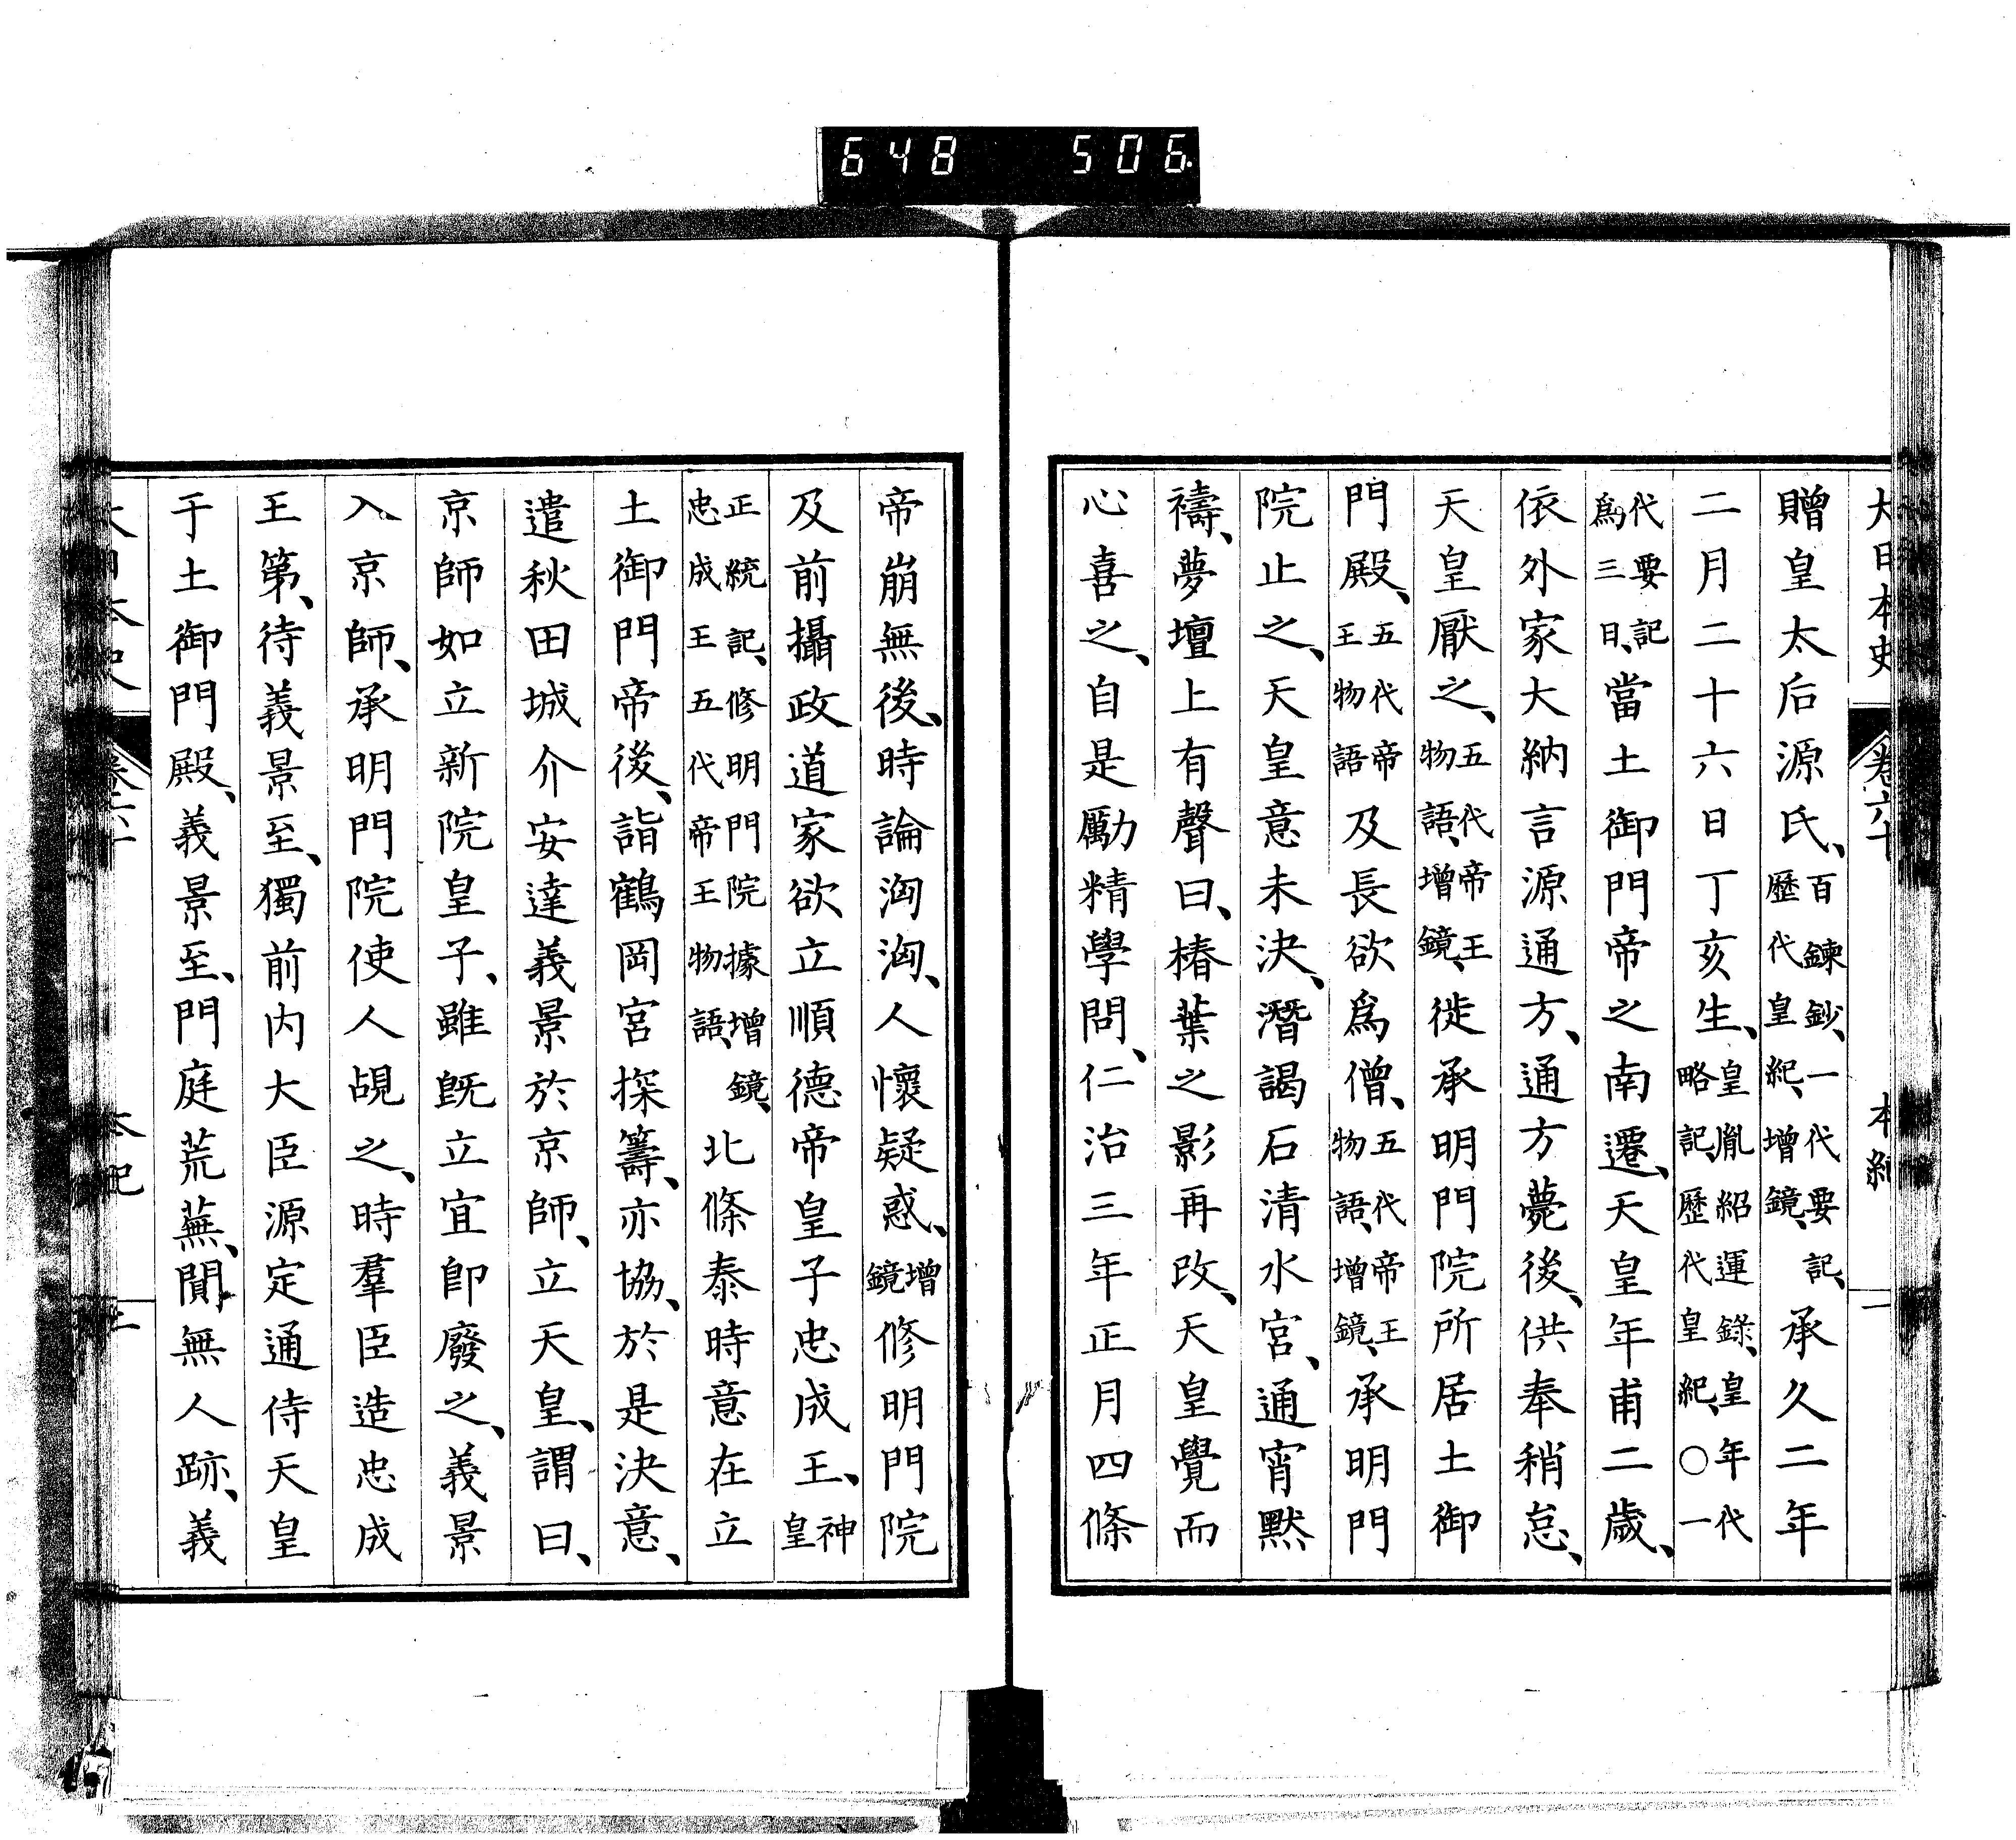 648 506
大日本史 卷六十 本紀 一
贈皇太后源氏、百鍊鈔、一代要記、歷代皇紀、增鏡、承久二年
二月二十六日丁亥生、皇胤紹運錄、皇年代略記、歷代皇紀、〇一
代要記爲三日、當土御門帝之南遷、天皇年甫二歲、
依外家大納言源通方、通方薨後、供奉稍怠、
天皇厭之、五代帝王物語、增鏡、徙承明門院所居土御
門殿、五代帝王物語及長欲爲僧、五代帝王物語、增鏡、承明門
院止之、天皇意未決、潛謁石清水宮、通宵默
禱、夢壇上有聲曰、椿葉之影再改、天皇覺而
心喜之、自是勵精學問、仁治三年正月四條
帝崩無後、時論洶洶、人懷疑惑、增鏡修明門院
及前攝政道家欲立順德帝皇子忠成王、神皇
正統記、修明門院據增鏡、忠成王五代帝王物語、北條泰時意在立
土御門帝後、詣鶴岡宮探籌、亦協、於是決意、
遣秋田城介安達義景於京師、立天皇、謂曰、
京師如立新院皇子、雖既立宜卽廢之、義景
入京師、承明門院使人覘之、時羣臣造忠成
王第、待義景至、獨前内大臣源定通侍天皇
于土御門殿、義景至、門庭荒蕪、闃無人跡、義
大日本史 卷六十 本紀